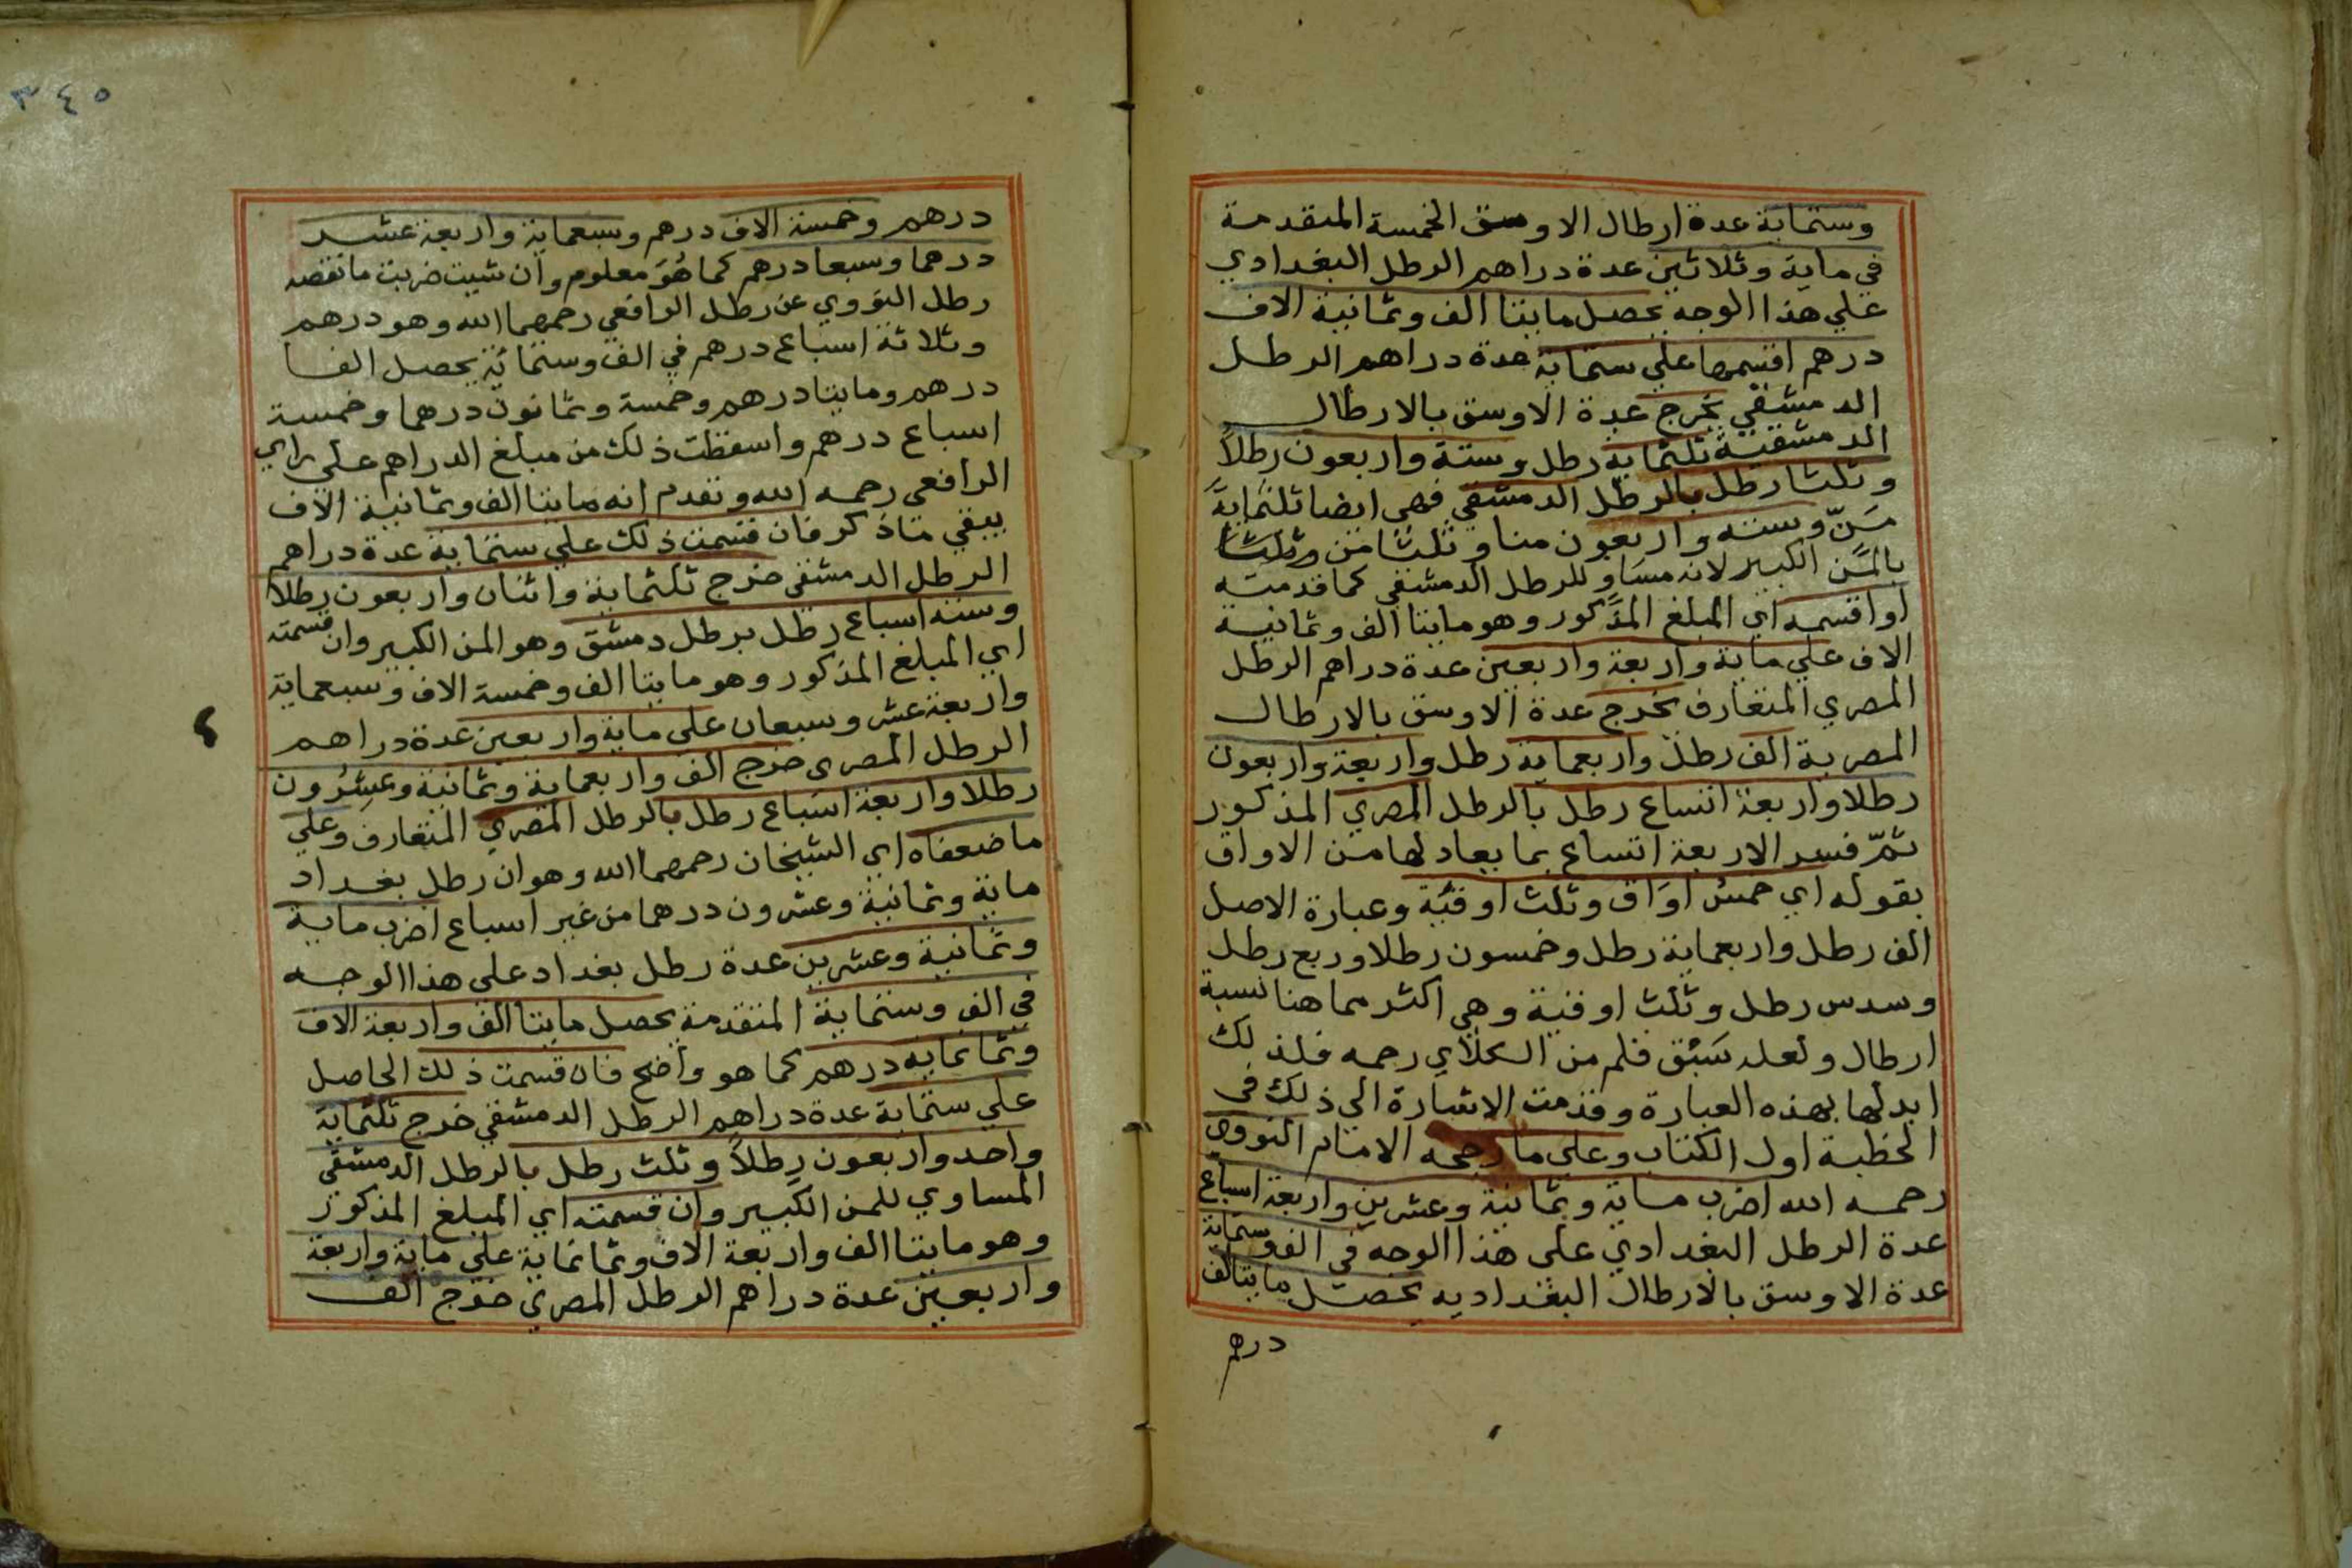 وستماية عدة ارطال الاوسق الخمسة المتقدمة
في ماية وثلاثين عدة دراهم الرطل البغدادي
علي هذا الوجه يحصل مايتا الف وثمانية الاف
درهم اقسمها علي ستماية عدة دراهم الرطل
الدمشقي يخرج عدة الاوسق بالارطال
الدمشقية ثلثماية رطل وستة واربعون رطلاً
وثلثا رطل بالرطل الدمشقي فهي ايضا ثلثماية
مَنّ وستة واربعون منا وثلثا من وثلثا
بالمَن الكبير لانه مساوٍ للرطل الدمشقي كما قدمته
او اقسمه اي المبلغ المذكور وهو مايتا الف وثمانية
الاف علي ماية واربعة واربعين عدة دراهم الرطل
المصري المتعارف يخرج عدة الاوسق بالارطال
المصرية الف رطل واربعماية رطل واربعة واربعون
رطلا واربعة اتساع رطل بالرطل المصري المذكور
ثمّ فسر الاربعة اتساع بما يعادلها من الاواق
بقوله اي خمسُ اوَاق وثلث اوقيَّة وعبارة الاصل
الف رطل واربعماية رطل وخمسون رطلا وربع رطل
وسدس رطل وثلث اوقية وهي اكثر مما هنا نسبة
ارطال ولعله سَبْق قلم من الكلاي رحمه فلذلك
ابدلها بهذه العبارة وقدمت الاشارة الي ذلك في
الخطبة اول الكتاب وعلي ما رجحه الامام النووي
رحمه الله اضرب ماية وثمانية وعشرين واربعة اسباع
عدة الرطل البغدادي على هذا الوجه في الف وستماية
عدة الاوسق بالارطال البغداديه يحصل مايتا الف
درهم
٣٤٥
درهم وخمسة الاف درهم وسبعماية واربعة عشر
درهما وسبعا درهم كما هُوَ معلوم وان شيت ضربت ما نقصه
رطل النووي عن رطل الرافعي رحمهما الله وهو درهم
وثلاثة اسباع درهم في الف وستمائة يحصل الفا
درهم ومايتا درهم وخمسة وثمانون درهما وخمسة
اسباع درهم واسقطت ذلك من مبلغ الدراهم علي راي
الرافعي رحمه الله وتقدم انه مايتا الف وثمانية الاف
يبقي ماذكر فان قسمت ذلك علي ستماية عدة دراهم
الرطل الدمشقي خرج ثلثماية واثنان واربعون رطلا
وستة اسباع رطل برطل دمشق وهو المن الكبير وان قسمته
اي المبلغ المذكور وهو مايتا الف وخمسة الاف وسبعماية
واربعة عشر وسبعان علي ماية واربعين عدة دراهم
الرطل المصري خرج الف واربعماية وثمانية وعشرُون
رطلا واربعة اسباع رطل بالرطل المصري المتعارف وعلي
ما ضعفاه اي الشيخان رحمهما الله وهو ان رطل بغداد
ماية وثمانية وعشرون درهما من غير اسباع اضرب ماية
وثمانية وعشرين عدة رطل بغداد على هذا الوجه
في الف وستماية المتقدمة يحصل مايتا الف واربعة الاف
وثمانماية درهم كما هو واضح فان قسمت ذلك الحاصل
علي ستماية عدة دراهم الرطل الدمشقي خرج ثلثماية
واحد واربعون رطلاً وثلث رطل بالرطل الدمشقي
المساوي للمن الكبير وان قسمته اي المبلغ المذكور
وهو مايتا الف واربعة الاف وثمانماية علي ماية واربعة
واربعين عدة دراهم الرطل المصري خرج الف